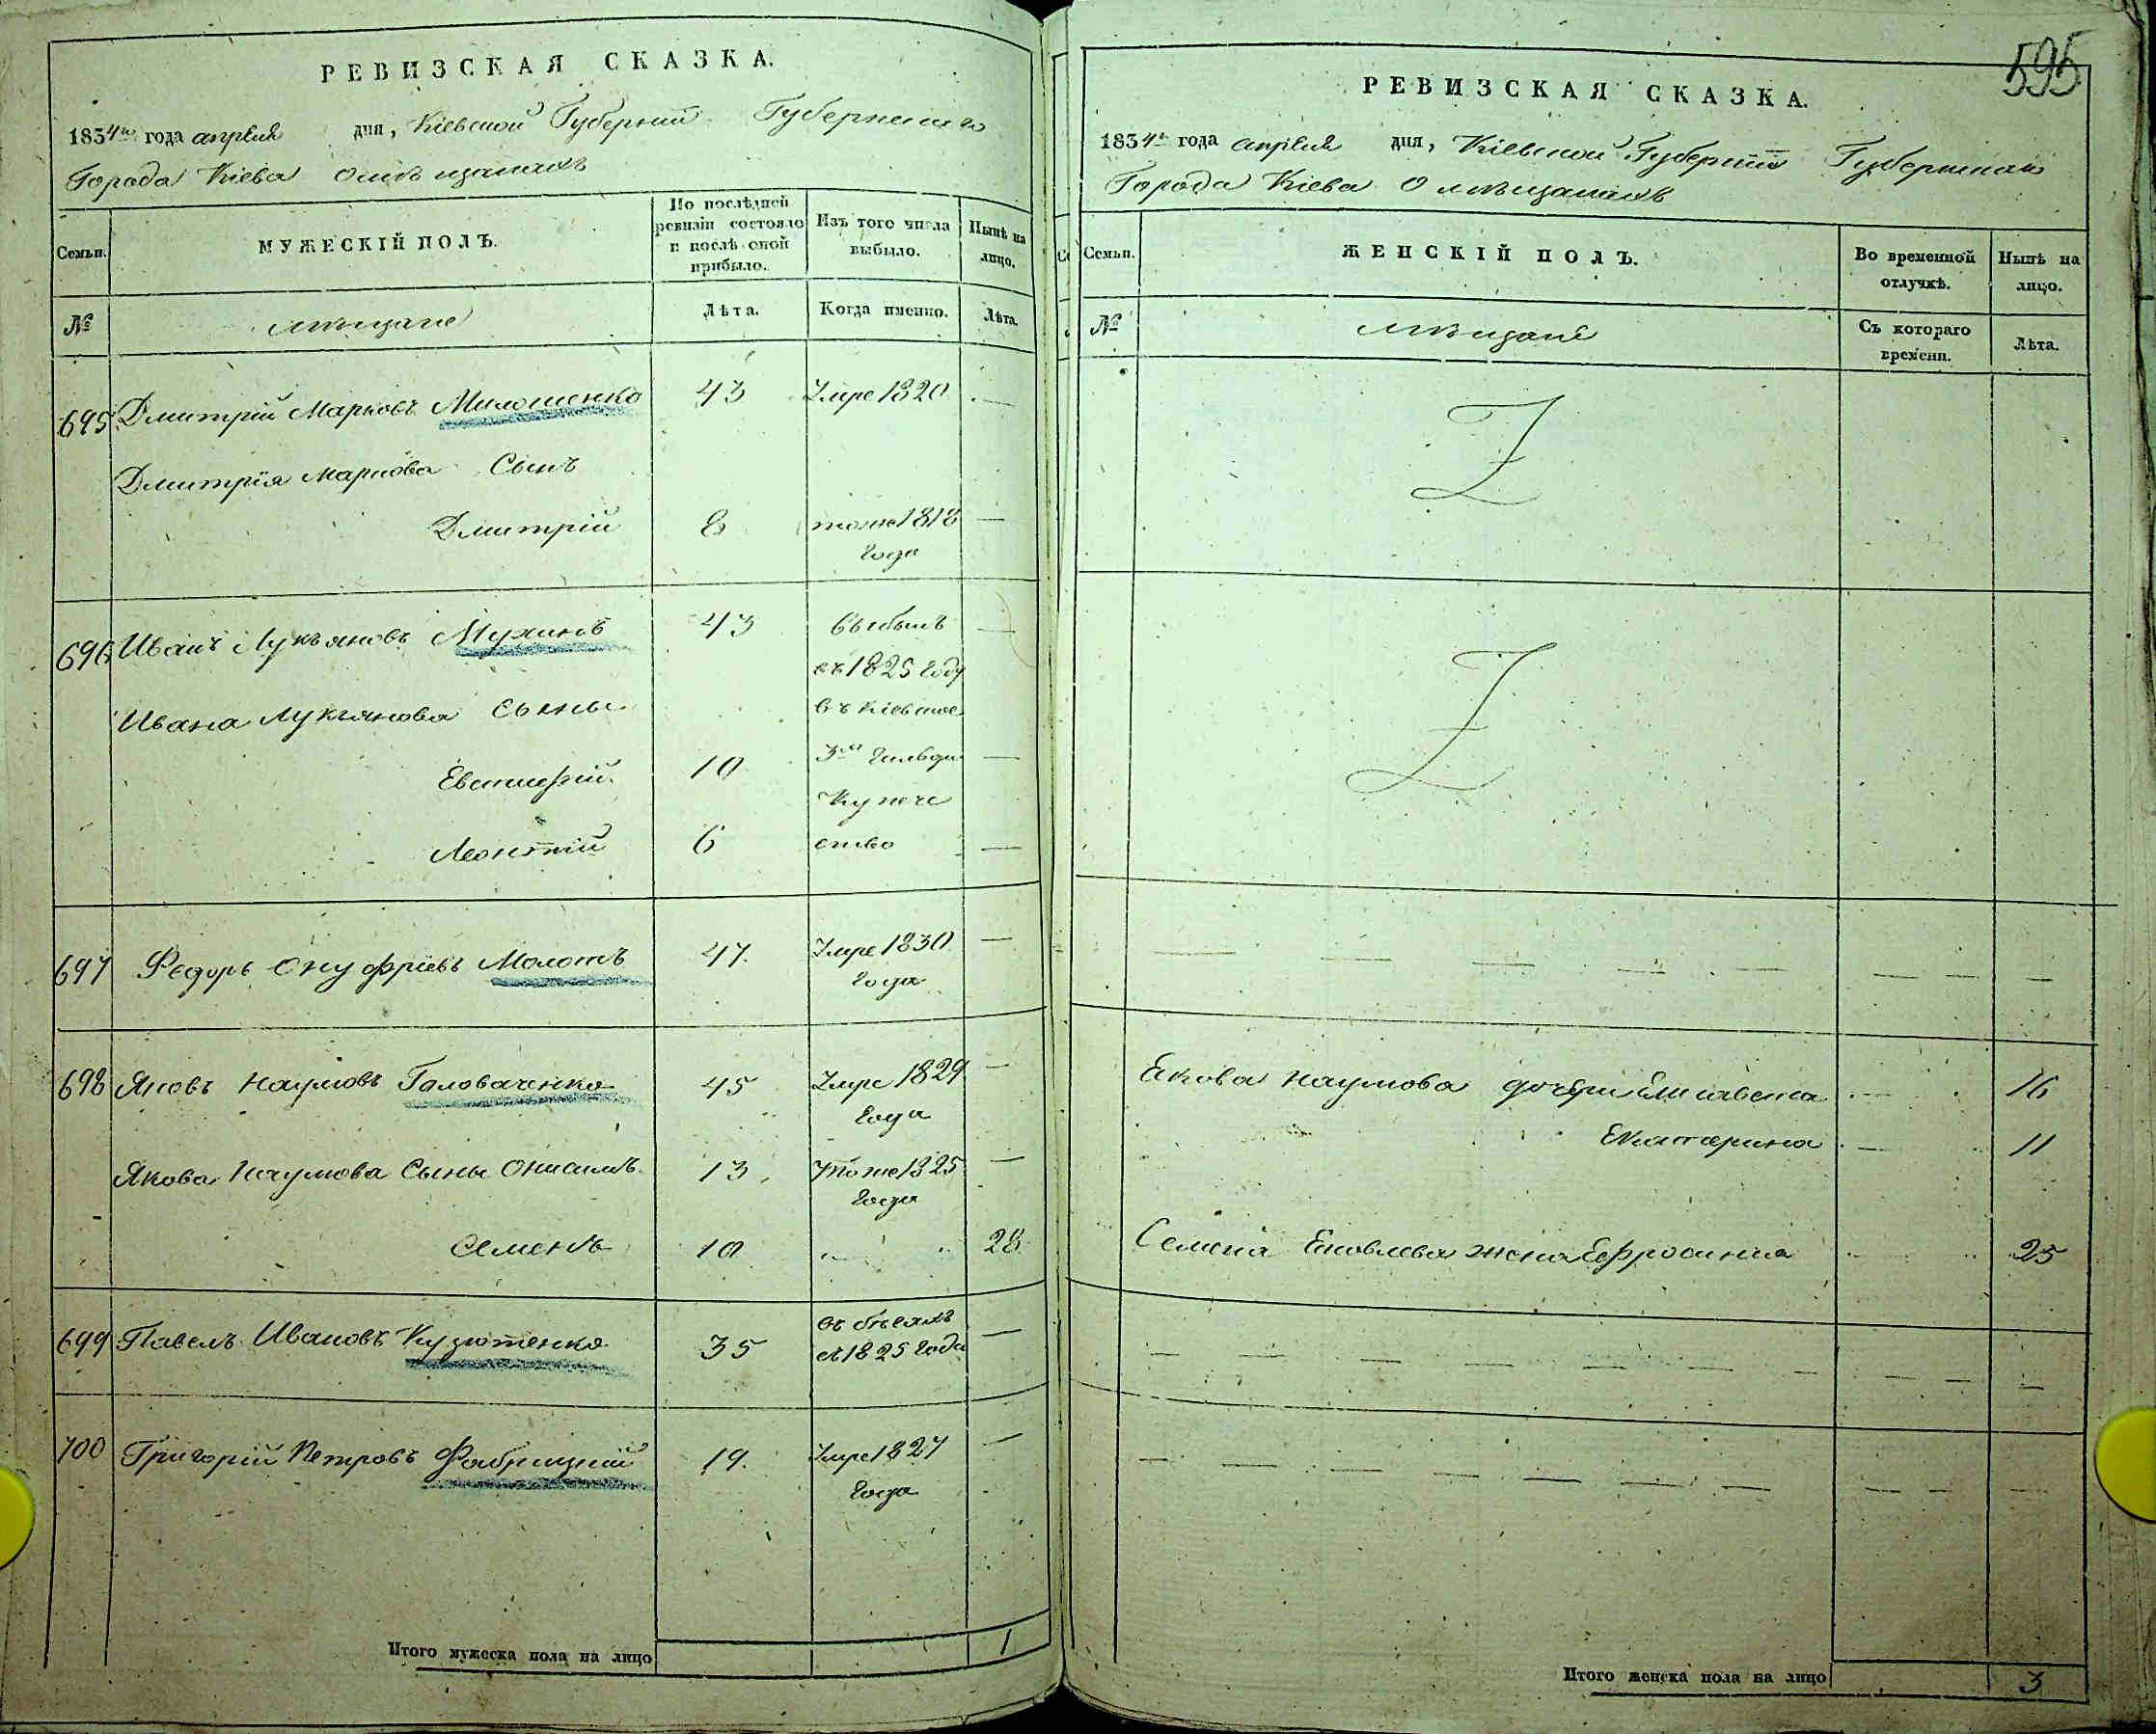 РЕВИЗСКАЯ СКАЗКА.
1834го года апреля дня, Кіевской Губерніи Губернскаго
Города Кіева о мѣщанахъ
Семьи.
МУЖЕСКІЙ ПОЛЪ.
По послѣдней
ревизіи состояло
и послѣ оной
прибыло.
Изъ того числа
выбыло.
Нынѣ на
лицо.
№
мѣщане
Лѣта.
Когда именно.
Лѣта.
695 Дмитрій Марковъ Милошенко 43 Умре 1820 —
Дмитрія Маркова Сынъ
Дмитрій 8 тоже 1818 —
года
696 Иванъ Лукъяновъ Мухинъ 43 выбылъ —
въ 1825 году
Ивана Лукьянова сыны въ Кіевское
Евстафій 10 3й гильди —
Купече
Леонтій 6 ство —
697 Федоръ Онуфріевъ Молотъ 47 Умре 1830 —
года
698 Яковъ Наумовъ Головаченко 45 Умре 1829 —
года
Якова Наумова Сыны Онисимъ 13 тоже 1825 —
года
Семенъ 10 28
699 Павелъ Ивановъ Кузютенко 35 въ бѣгахъ —
съ 1825 года
700 Григорій Петровъ Фабрицкій 19 Умре 1827 —
года
Итого мужеска пола на лицо 1
595
РЕВИЗСКАЯ СКАЗКА.
1834го года апреля дня, Кіевской Губерніи Губернскаго
Города Кіева О мѣщанахъ
Семьи.
ЖЕНСКІЙ ПОЛЪ.
Во временной
отлучкѣ.
Нынѣ на
лицо.
№
мѣщане
Съ котораго
времени.
Лѣта.
Якова Наумова дочери Елисавета 16
Екатерина 11
Семена Яковлева жена Ефросинія 25
Итого женска пола на лицо 3